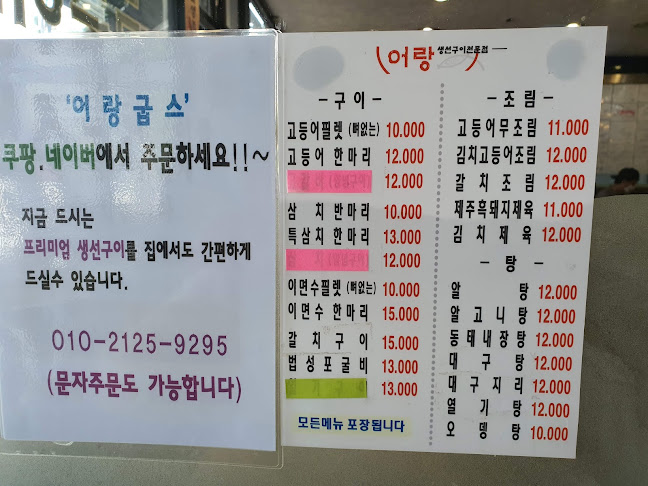 '어랑굽스'
쿠팡.네이버에서 주문하세요!!~
지금 드시는
프리미엄 생선구이를 집에서도 간편하게
드실수 있습니다.
010-2125-9295
(문자주문도 가능합니다)
어랑 생선구이전문점
- 구 이 -
고등어필렛 (뼈없는) 10.000
고등어 한마리 12.000
12.000
삼치 반마리 10.000
특삼치 한마리 13.000
12.000
이면수필렛 (뼈없는) 10.000
이면수 한마리 15.000
갈치구이 15.000
법성포굴비 13.000
13.000
모든메뉴 포장됩니다
- 조 림 -
고등어무조림 11.000
김치고등어조림 12.000
갈치조림 12.000
제주흑돼지제육 11.000
김치제육 12.000
- 탕 -
알 탕 12.000
알고니탕 12.000
동태내장탕 12.000
대구탕 12.000
대구지리 12.000
열기탕 12.000
오뎅탕 10.000